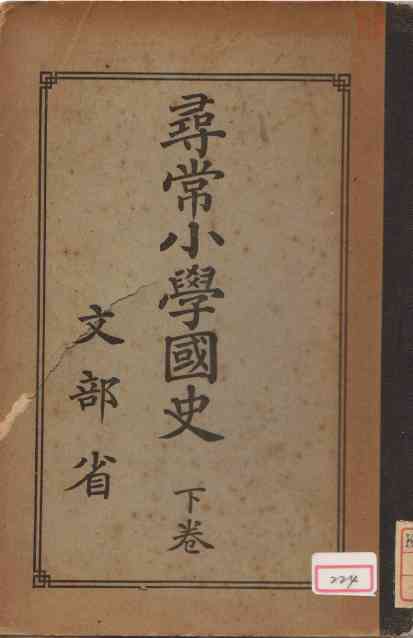 尋常小學國史 下卷
文部省
224